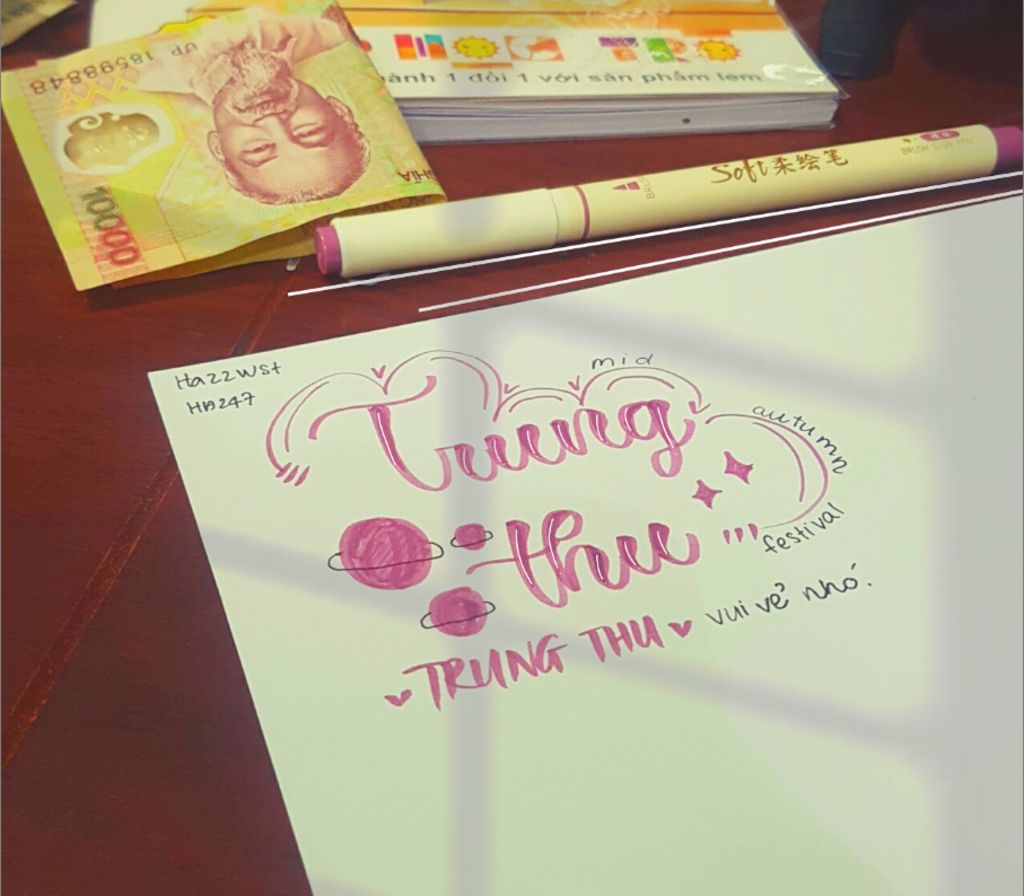 UP 18598848
10000
NGHĨA
hành 1 đổi 1 với sản phẩm lem
BRUSH
Soft柔绘笔
BRUSH SIGN PEN
Hazzwst
HB247
mid
autumn
festival
Trung
thu
TRUNG THU vui vẻ nhó.